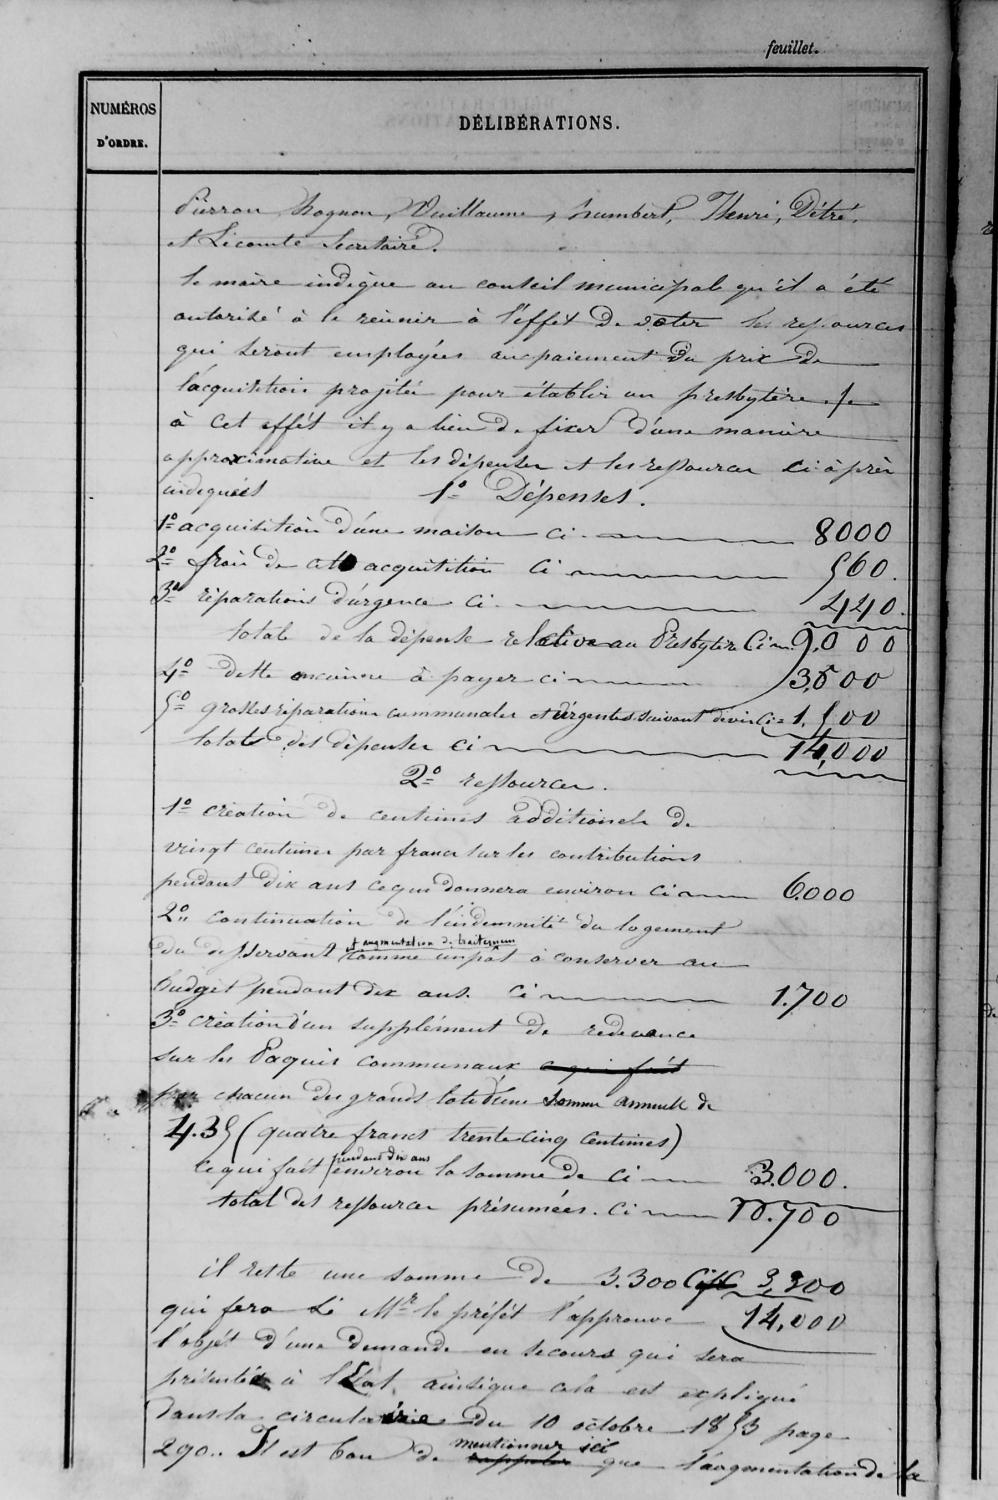 feuillet.
NUMÉROS
D'ORDRE.
DÉLIBÉRATIONS.
Pierron, Rognon, Vuillaume, humbert, Henri, Détré,
et Lecomte Secrétaire.
le maire indique au conseil municipale qu'il a été
autorisé à le réunir à l'effet De voter les ressources
qui seront employées au paiement Du prix De
l'acquisition projetée pour établir un presbytère.
à Cet effét il y a lieu De fixer D'une manière
approximative et les dépenses et les ressources ci-après
indiquées 1° Dépenses.
1° acquisition D'une maison ci 8000
2° frais De cette acquisition ci 560.
3° réparations D'urgence ci 440.
total de la dépense relative au Presbytère Ci 9.000
4° dette ancienne à payer ci 3,500
5° grosses réparations communales et urgentes suivant devis Ci 1,500
total des dépenses ci 14,000
2° ressources.
1° création De centimes additionels De
vingt centimes par franc sur les contributions
pendant Dix ans ce qui Donnera environ ci 6.000
2° continuation De l'indemnité Du logement
et augmentation de traitement
Du desservant comme impôt à conserver au
budget pendant Dix ans. ci 1.700
3° création D'un supplément De redevance
sur les Paquis communaux ce qui fait
par chacun Des grands lots D'une somme annuelle De
4.35 (quatre francs trente cinq centimes)
pendant dix ans
ce qui fait environ la somme De ci 3.000.
total Des ressources présumées. Ci 10.700
il reste une somme De 3.300 Ci 3,300
qui fera si Mr le préfét l'approuve 14,000
l'objet D'une Demande en secours qui sera
présentée à l'Etat, ainsi que cela est expliqué
Dans la circulaire Du 10 octobre 1853 page
mentionner ici
290. Il est bon De rappeler que l'augmentation De la